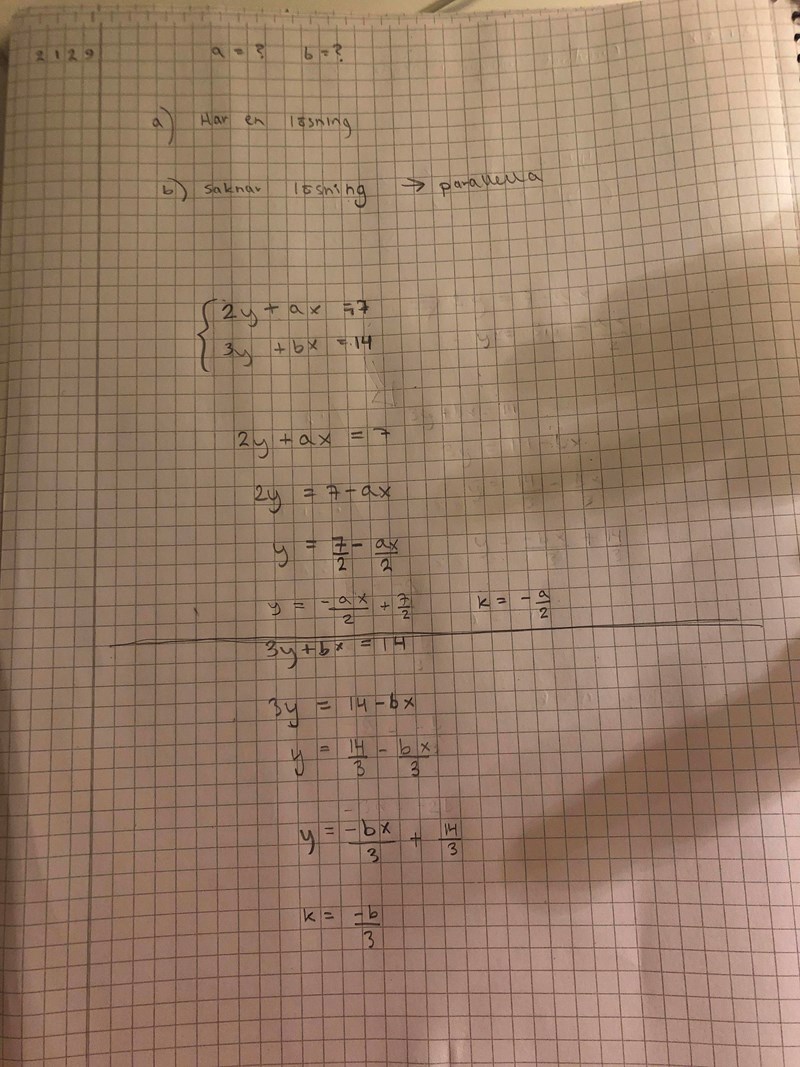 2129 a = ? b = ?
a) Har en lösning
b) saknar lösning → parallella
{ 2y + ax = 7
3y + bx = 14
2y + ax = 7
2y = 7 - ax
y = 7/2 - ax/2
y = -ax/2 + 7/2 k = -a/2
3y + bx = 14
3y = 14 - bx
y = 14/3 - bx/3
y = -bx/3 + 14/3
k = -b/3